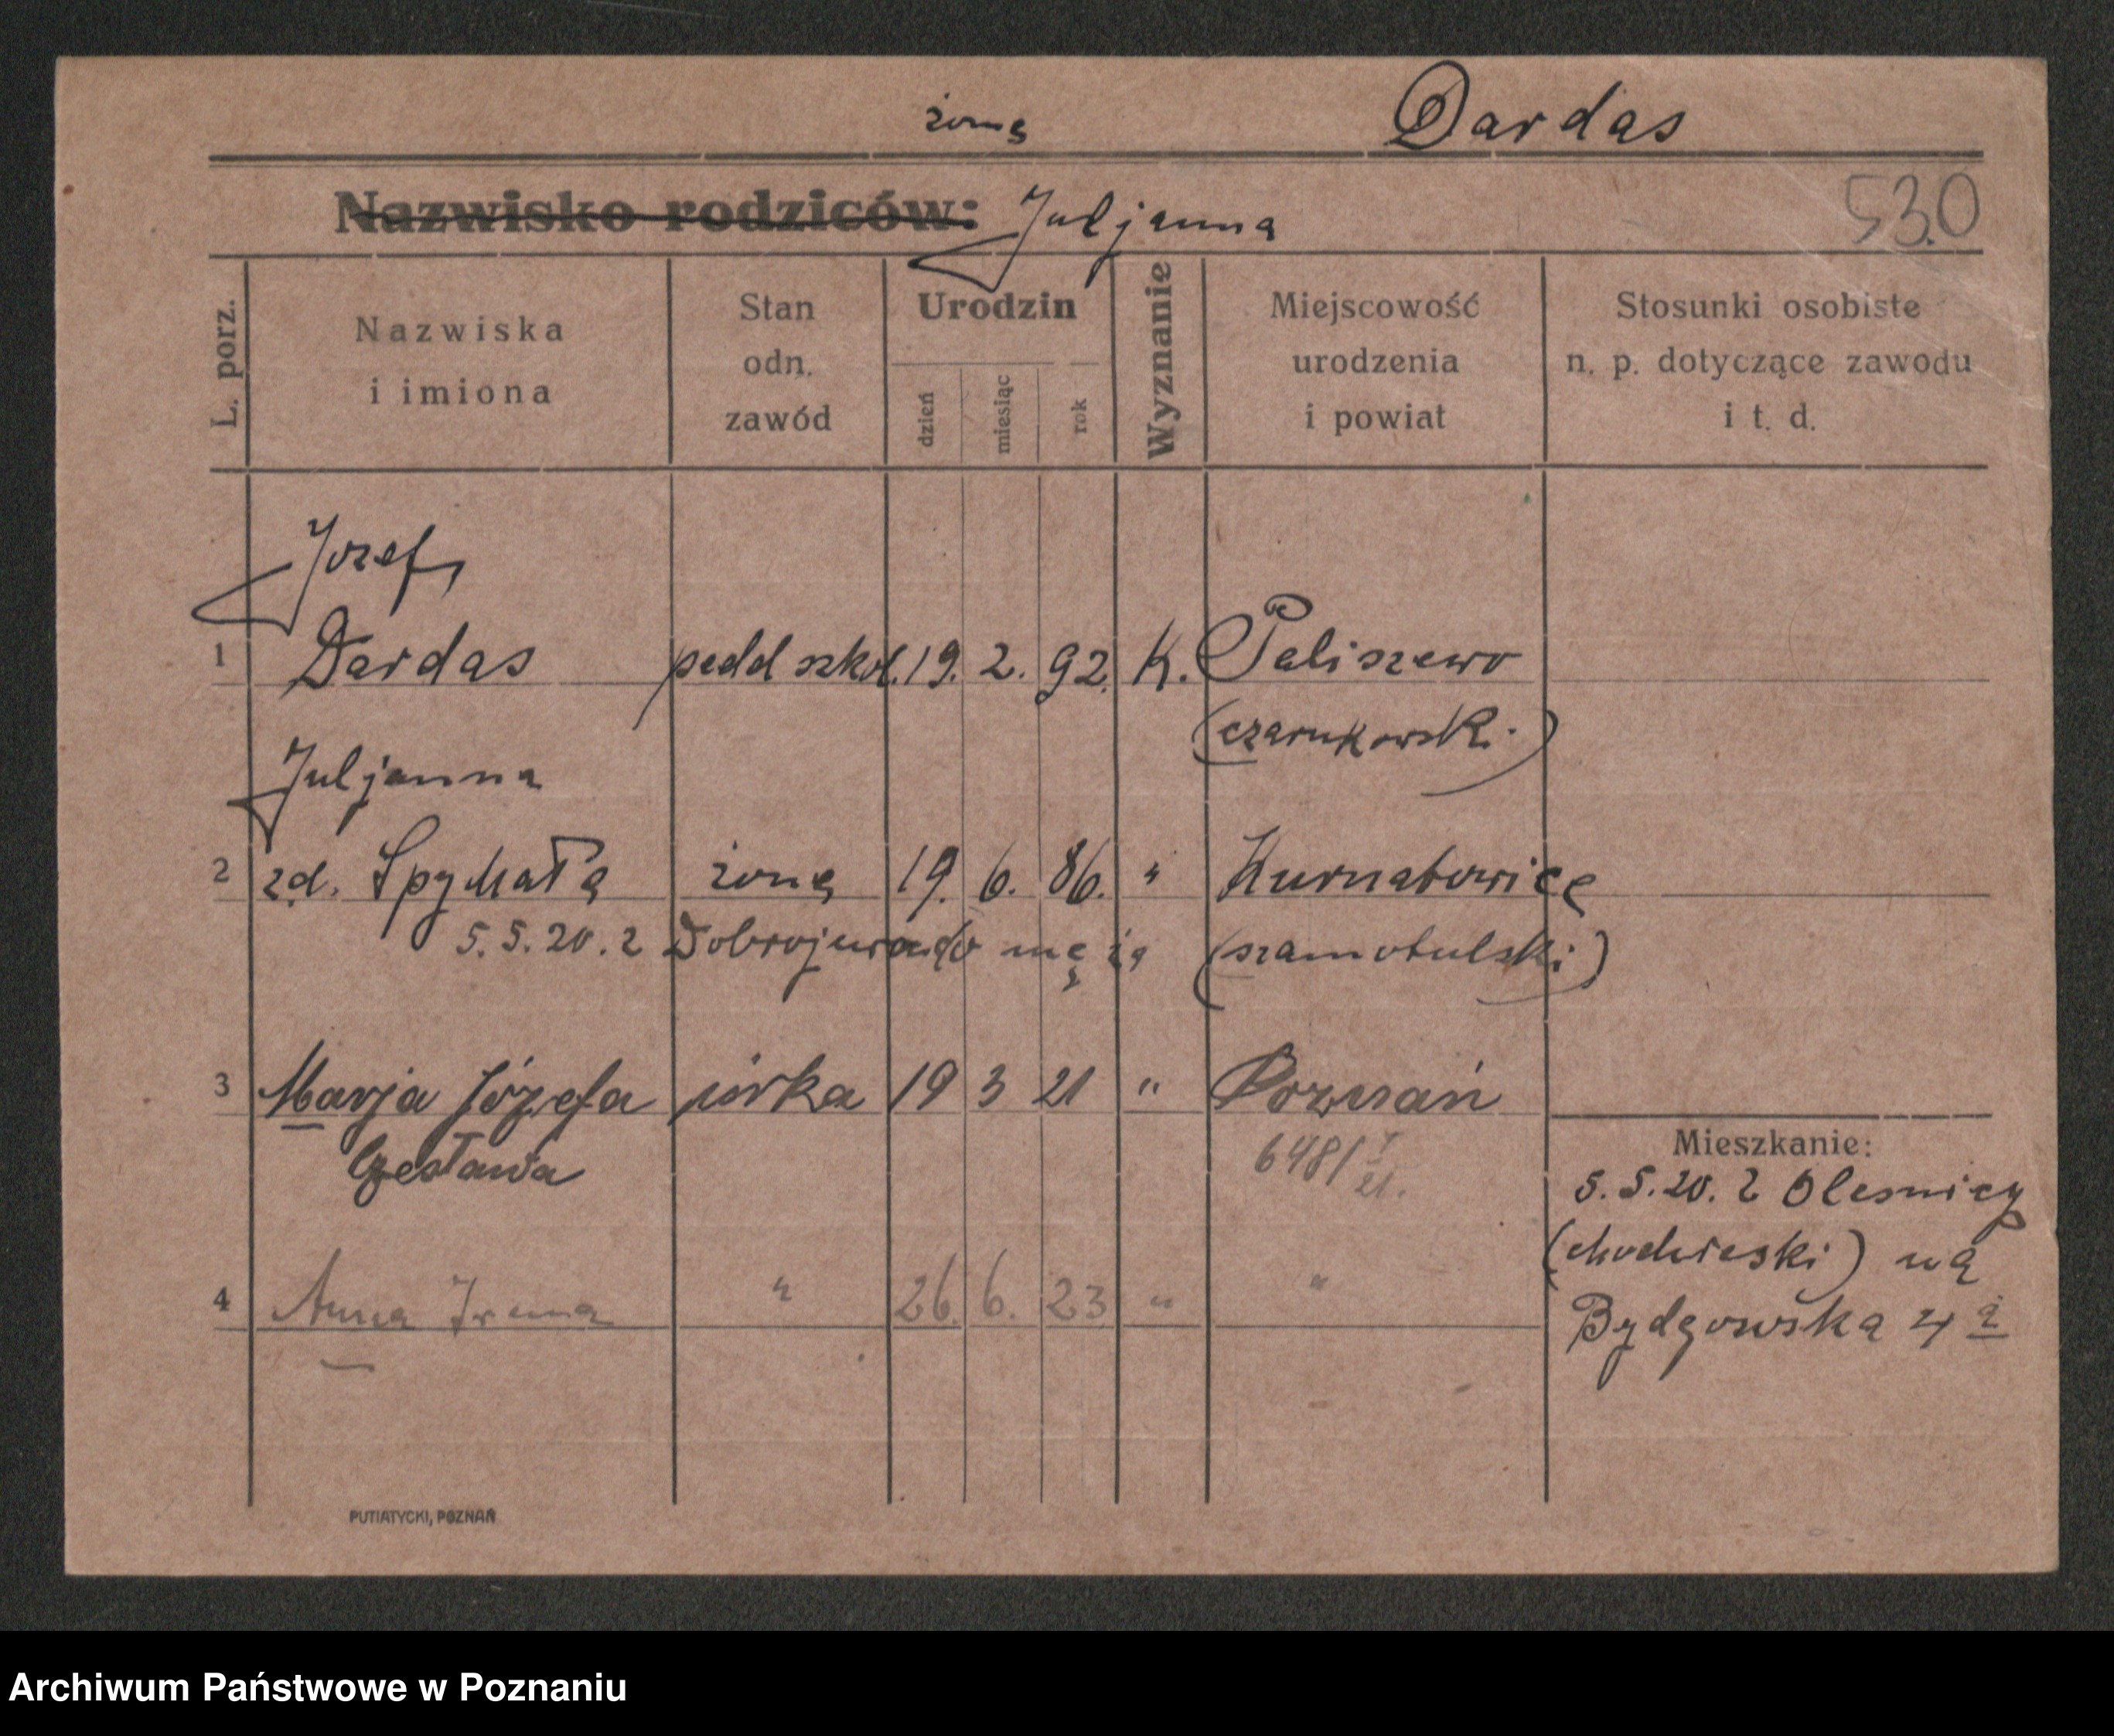 żona Dardas
Nazwisko rodziców: Juljanna 530
L. porz. Nazwiska i imiona Stan odn. zawód Urodzin dzień miesiąc rok Wyznanie Miejscowość urodzenia i powiat Stosunki osobiste n. p. dotyczące zawodu i t. d.
Jozef
1 Dardas pedel szkol. 19. 2. 92. K. Paliszewo
(czarnkowski.)
Juljanna
2 zd. Spychała żona 19. 6. 86. " Kurnatowice
5. 5. 20. z Dobrojewa do męża (szamotulski)
3 Marja Józefa córka 19 3 21 " Poznań
Czesława 648/I 21.
Mieszkanie:
5. 5. 20. z Olesnicy
(chodzieski) na
4 Anna Irena " 26. 6. 23 " " Bydgowska 4 a
PUTIATYCKI, POZNAŃ
Archiwum Państwowe w Poznaniu